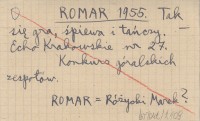 ROMAR 1955. Tak
się gra, śpiewa i tańczy. —
Echo Krakowskie nr 27.
Konkurs góralskich
zespołów.
ROMAR = Różycki Marek?